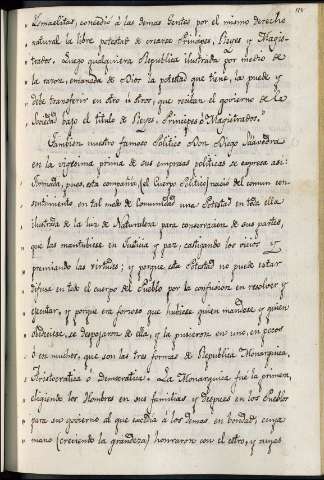 " Ismaelitas, concedió à las demas Gentes por el mismo derecho
" natural la libre potestad de crearse Principes, Reyes y Magis-
" trados. Luego qualquiera Republica ilustrada por medio de
" la razon, emanada de Dios la potestad que tiene, la puede y
" debe transferir en otro ò otros, que reciban el govierno de la
" Sociedad bajo el titulo de Reyes, Principes ò Magistrados.
Tambien nuestro famoso Politico Don Diego Saavedra
en la vigesima prima de sus empresas politicas se expresa asi:
" Formada, pues, esta compañia, (el Cuerpo Politico) nació del comun con-
" sentimiento en tal modo de Comunidad una Potestad en toda ella
" ilustrada de la luz de Naturaleza para conservacion de sus partes,
" que las mantubiese en Justicia y paz, castigando los vicios y
" premiando las virtudes; y porque esta Potestad no puede estar
" difusa en todo el cuerpo del Pueblo por la confusion en resolver y
" ejecutar, y porque era forzoso que hubiese quien mandase, y quien
" obedeciese, se despojaron de ella, y la pusieron en uno, en pocos
" ò en muchos, que son las tres formas de Republica Monarquica,
" Aristocratica ò democratica. La Monarquica fue la primera,
" eligiendo los Hombres en sus familias, y despues en los Pueblos
" para su govierno al que excedia à los demas en bondad, cuya
" mano (creciendo la grandeza) honraron con el cetro, y cuyas